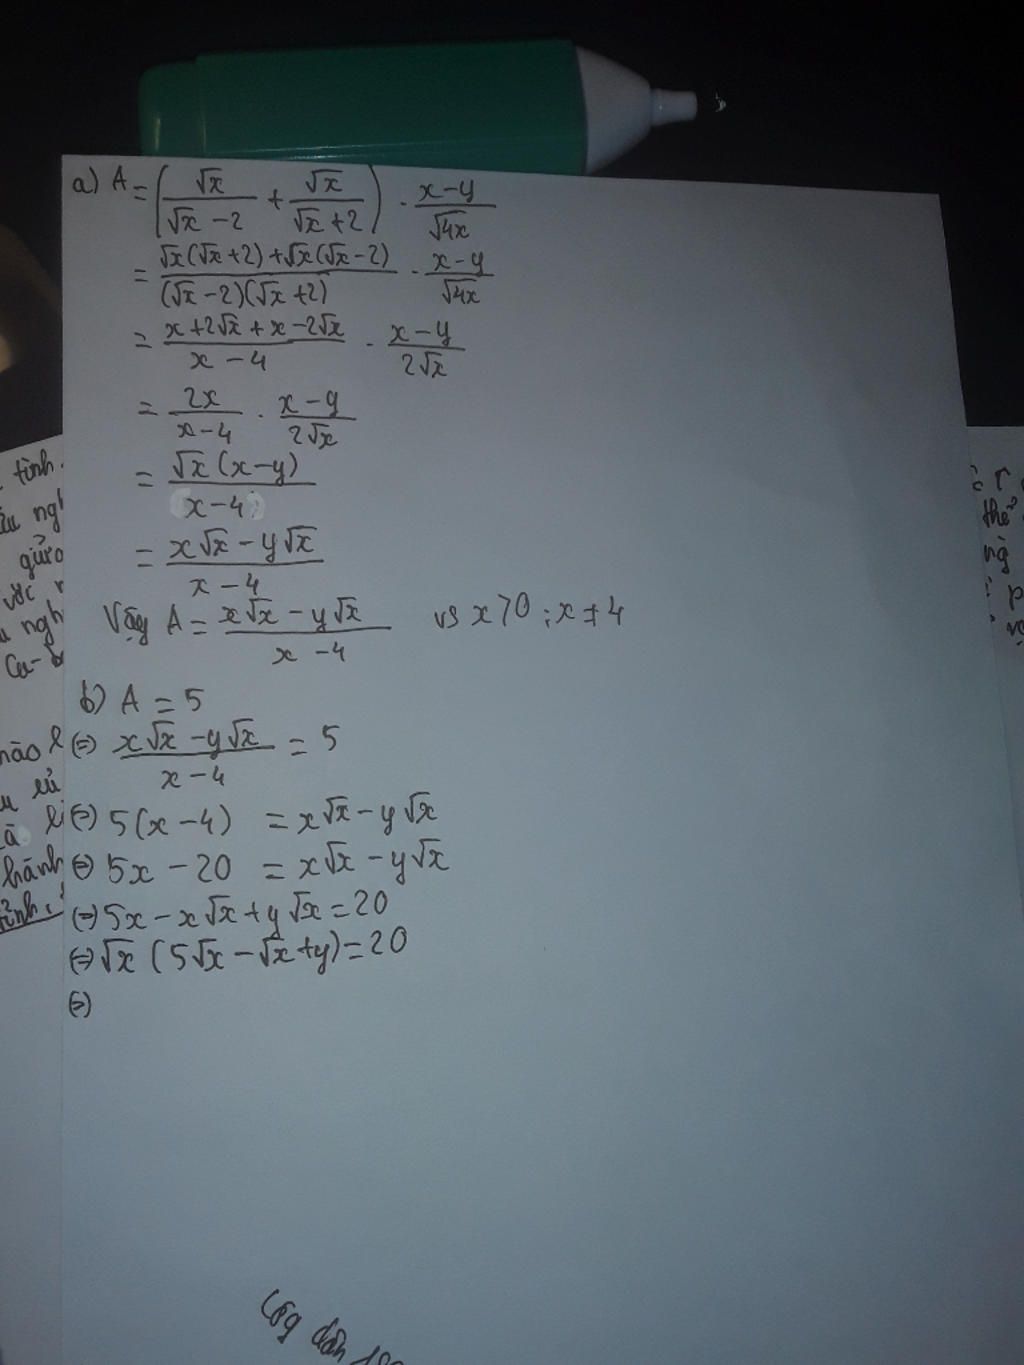 a) A = (√x/(√x - 2) + √x/(√x + 2)) . (x - y)/√4x
= (√x(√x + 2) + √x(√x - 2))/((√x - 2)(√x + 2)) . (x - y)/√4x
= (x + 2√x + x - 2√x)/(x - 4) . (x - y)/(2√x)
= 2x/(x - 4) . (x - y)/(2√x)
= √x(x - y)/(x - 4)
= (x√x - y√x)/(x - 4)
Vậy A = (x√x - y√x)/(x - 4) vs x > 0 ; x ≠ 4
b) A = 5
(=) (x√x - y√x)/(x - 4) = 5
(=) 5(x - 4) = x√x - y√x
(=) 5x - 20 = x√x - y√x
(=) 5x - x√x + y√x = 20
(=) √x (5√x - √x + y) = 20
(=)
tình.
ngh
giữa
ước
ngh
Ca-
nào
hành
thể